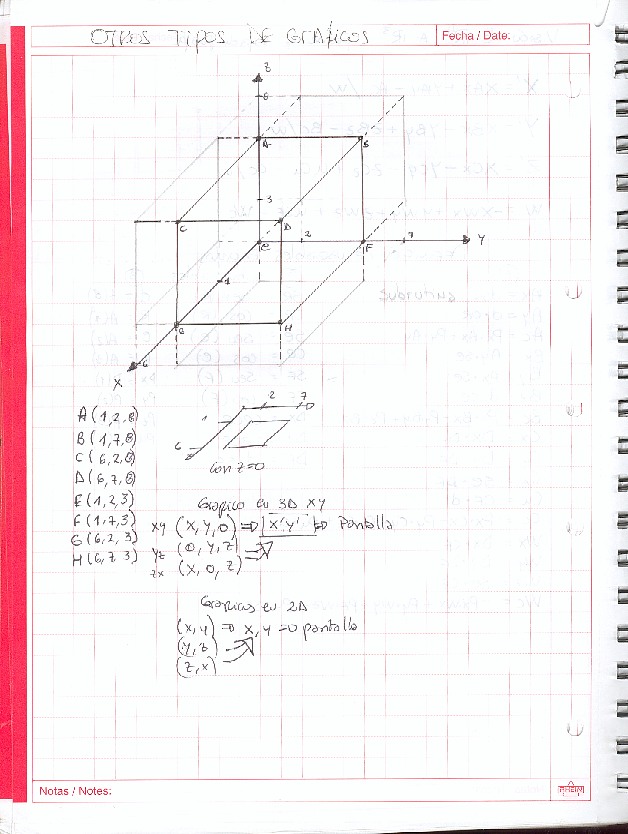 OTROS TIPOS DE GRAFICOS
Fecha / Date:
Z
8
A
B
3
C
D
E
2
F
7
Y
1
G
H
6
X
A (1,2,8)
B (1,7,8)
C (6,2,8)
D (6,7,8)
E (1,2,3)
F (1,7,3)
G (6,2,3)
H (6,7,3)
2 7
1
6
Con z=0
Grafico en 3D XY
XY (X,Y,0) ⇒ X'Y' ⇒ Pantalla
YZ (0,Y,Z)
ZX (X,0,Z)
Graficas en 2D
(X,Y) ⇒ X,Y ⇒ pantalla
(Y,Z)
(Z,X)
Notas / Notes: